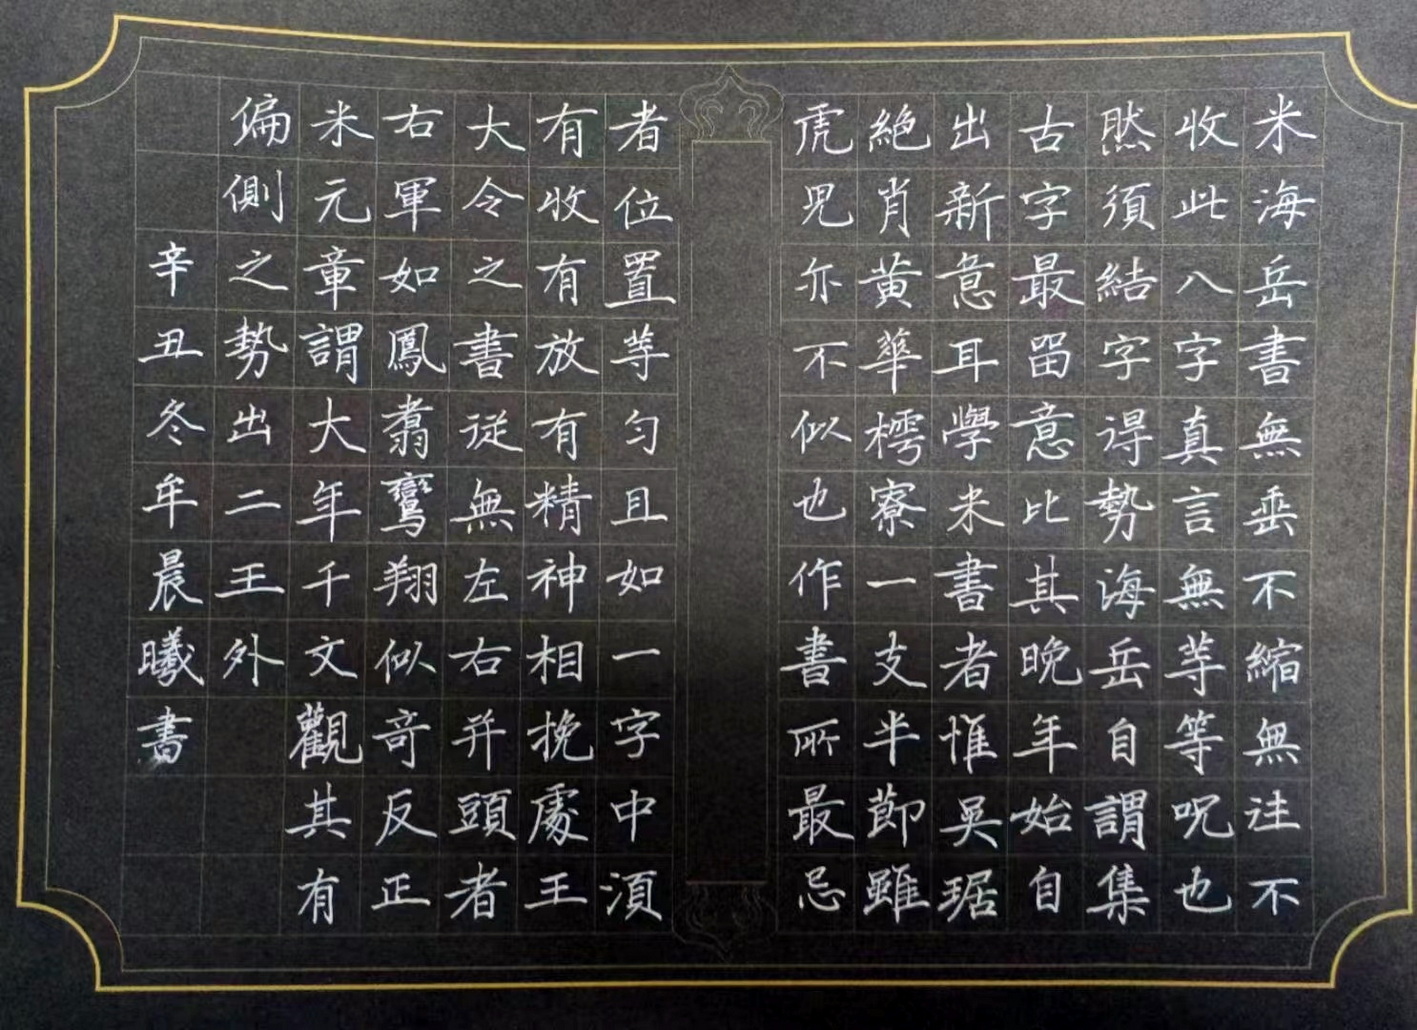 米海岳書無垂不縮無往不
收此八字真言無等等呪也
然須結字得勢海岳自謂集
古字最留意比其晚年始自
出新意耳學米書者惟吳琚
絕肖黃華樗寮一支半節雖
虎兒亦不似也作書所最忌
者位置等勻且如一字中須
有收有放有精神相挽處王
大令之書從無左右并頭者
右軍如鳳翥鸞翔似奇反正
米元章謂大年千文觀其有
偏側之勢出二王外
辛丑冬牟晨曦書